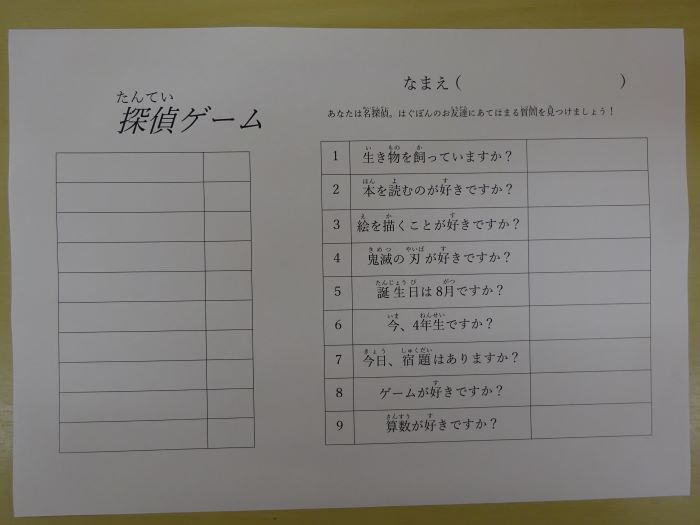 たんてい
探偵ゲーム
なまえ(　　　　　　　)
あなたは名探偵。はぐぽんのお友達にあてはまる質問を見つけましょう！
1 生き物を飼っていますか？
2 本を読むのが好きですか？
3 絵を描くことが好きですか？
4 鬼滅の刃が好きですか？
5 誕生日は8月ですか？
6 今、4年生ですか？
7 今日、宿題はありますか？
8 ゲームが好きですか？
9 算数が好きですか？